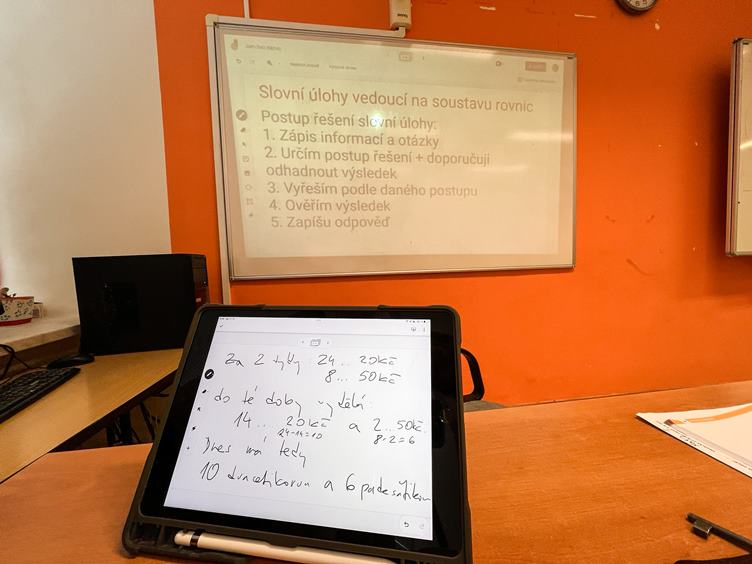 Slovní úlohy vedoucí na soustavu rovnic
Postup řešení slovní úlohy:
1. Zápis informací a otázky
2. Určím postup řešení + doporučuji
odhadnout výsledek
3. Vyřeším podle daného postupu
4. Ověřím výsledek
5. Zapíšu odpověď
Za 2 týdny 24... 20kč
8... 50kč
do té doby vydělá:
14... 20kč a 2...50kč.
24-14=10 8-2=6
Dnes má tedy
10 dvacetikorun a 6 padesátikorun